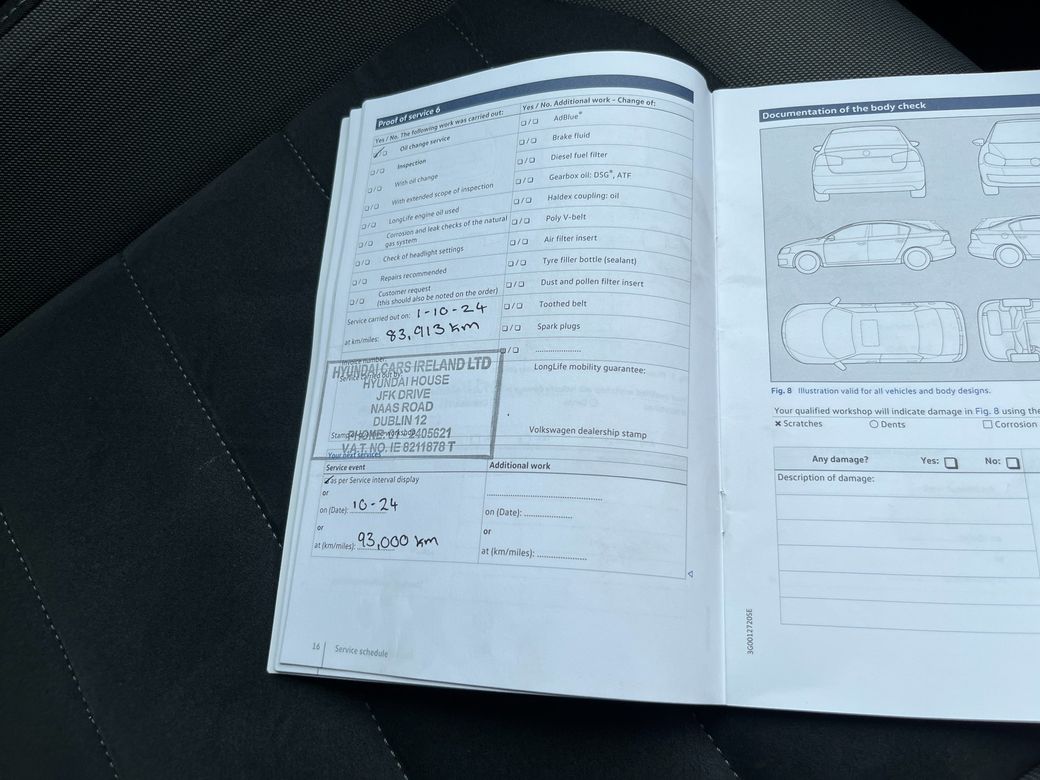 Proof of service 6
Yes / No. The following work was carried out:
Oil change service
Inspection
With oil change
With extended scope of inspection
LongLife engine oil used
Corrosion and leak checks of the natural
gas system
Check of headlight settings
Repairs recommended
Customer request
(this should also be noted on the order)
Service carried out on: 1-10-24
at km/miles: 83,913 km
Invoice number:
Service carried out by:
HYUNDAI CARS IRELAND LTD
HYUNDAI HOUSE
JFK DRIVE
NAAS ROAD
DUBLIN 12
PHONE: 01 2405621
V.A.T. NO. IE 8211878 T
Yes / No. Additional work – Change of:
AdBlue®
Brake fluid
Diesel fuel filter
Gearbox oil: DSG®, ATF
Haldex coupling: oil
Poly V-belt
Air filter insert
Tyre filler bottle (sealant)
Dust and pollen filter insert
Toothed belt
Spark plugs
LongLife mobility guarantee:
Volkswagen dealership stamp
Your next services
Service event
as per Service interval display
or
on (Date): 10-24
or
at (km/miles): 93,000 km
Additional work
on (Date):
or
at (km/miles):
16 Service schedule
Documentation of the body check
Fig. 8 Illustration valid for all vehicles and body designs.
Your qualified workshop will indicate damage in Fig. 8 using the
Scratches Dents Corrosion
Any damage? Yes: No:
Description of damage:
3G0012720SE